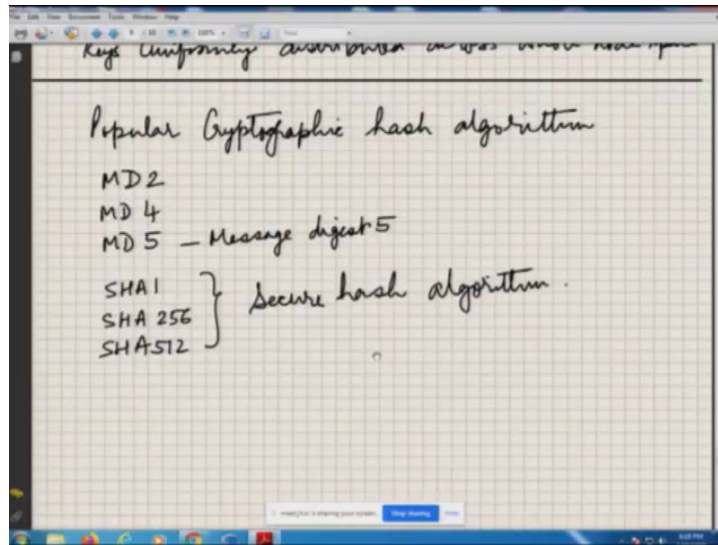 File Edit View Document Tools Window Help
Keys uniformly distributed across whole node space
Popular Cryptographic hash algorithm
MD2
MD 4
MD 5 – Message digest 5
SHA1
SHA 256
SHA512
Secure hash algorithm.
is sharing your screen.
Stop sharing
Hide